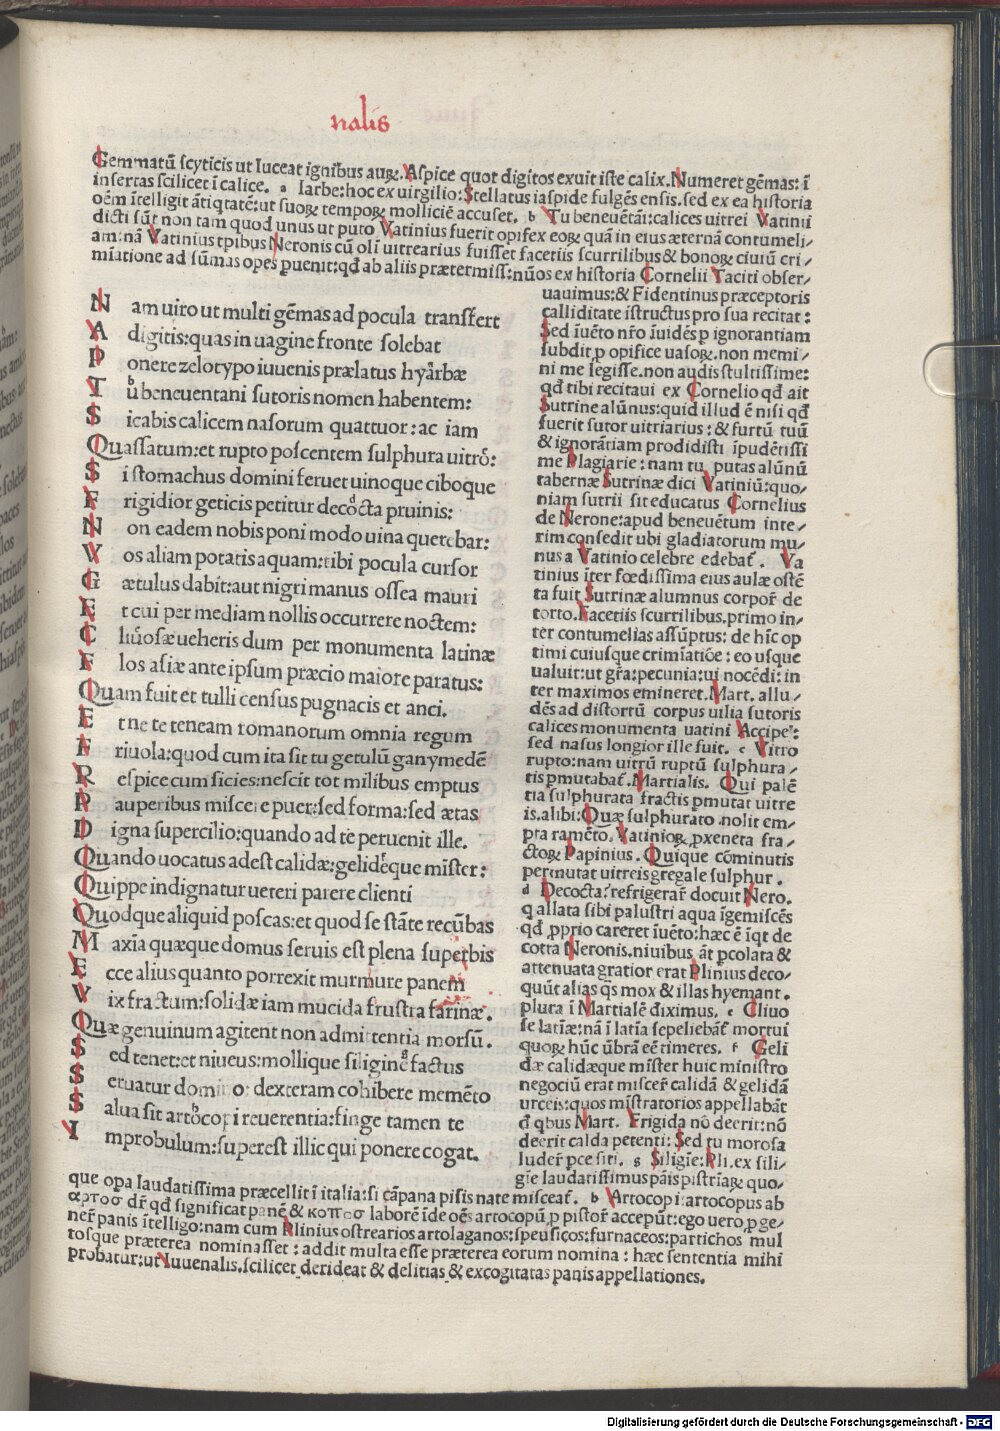 nalis
Gemmatū scyticis ut luceat ignibus auꝝ. Aspice quot digitos exuit iste calix. Numeret gēmas: ī
insertas scilicet ī calice. a Iarbe: hoc ex uirgilio: Stellatus iaspide fulgēs ensis. sed ex ea historia
oēm ītelligit ātiqtatē: ut suoꝝ tempoꝝ molliciē accuset. b Tu beneuētāi: calices uitrei Vatinii
dicti sūt non tam quod unus ut puto Vatinius fuerit opifex eoꝝ quā in eius æternā contumeli/
am: nā Vatinius tpibus Neronis cū oli uitrearius fuisset facetiis scurrilibus & bonoꝝ ciuiū cri/
miatione ad sūmas opes puenit: qđ ab aliis prætermiss: nūos ex historia Cornelii Taciti obser/
N am uiro ut multi gēmas ad pocula transfert
A digitis: quas in uagine fronte solebat
P onere zelotypo iuuenis prælatus hyarbæ
T u beneuentani sutoris nomen habentem:
S iccabis calicem nasorum quattuor: ac iam
Quassatum: et rupto poscentem sulphura uitro:
S i stomachus domini feruet uinoque ciboque
F rigidior geticis petitur decocta pruinis:
N on eadem nobis poni modo uina querebar:
V os aliam potatis aquam: tibi pocula cursor
G ætulus dabit: aut nigri manus ossea mauri
E t cui per mediam nollis occurrere noctem:
C liuosæ ueheris dum per monumenta latinæ
F los asiæ ante ipsum præcio maiore paratus:
Quam fuit et tulli census pugnacis et anci.
E t ne te teneam romanorum omnia regum
F riuola: quod cum ita sit tu getulū ganymedē
R espice cum sicies: nescit tot milibus emptus
P auperibus miscere puer: sed forma: sed ætas
D igna supercilio: quando ad te peruenit ille.
Quando uocatus adest calidæ: gelidęque mīster:
Quippe indignatur ueteri parere clienti
Quodque aliquid poscas: et quod se stāte recūbas
M axīa quæque domus seruis est plena superbis
E cce alius quanto porrexit murmure panem
V ix fractum: solidæ iam mucida frustra farinæ.
Quæ genuinum agitent non admittentia morsū.
S ed tenet: et niueus: mollique siligine factus
S eruatur domino: dexteram cohibere memēto
S alua sit artocopi reuerentia: finge tamen te
I mprobulum: superest illic qui ponere cogat.
uauimus: & Fidentinus præceptoris
calliditate īstructus pro sua recitat:
Sed īuēto nr̄o īuidēs p ignorantiam
subdit p opifice uasoꝝ. non memi/
ni me legisse. non audis stultissime:
qđ tibi recitaui ex Cornelio qđ ait
Sutrine alūnus: quid illud ē nisi qđ
fuerit sutor uitriarius: & furtū tuū
& ignorātiam prodidisti īpudētissi
me Plagiarie: nam tu putas alūnū
tabernæ Sutrinæ dici Vatiniū: quo/
niam sutrii sit educatus Cornelius
de Nerone: apud beneuētum inte/
rim consedit ubi gladiatorum mu/
nus a Vatinio celebre edebat̄. Va
tinius īter fœdissima eius aulæ ostē
ta fuit Sutrinæ alumnus corpor̄ de
torto. Facetiis scurrilibus. primo in/
ter contumelias assūptus: de hīc op
timi cuiusque crimīatiōe: eo usque
ualuit: ut gr̄a: pecunia: ui nocēdi: in
ter maximos emineret. Mart. allu/
dēs ad distortū corpus uilia sutoris
calices monumenta uatini Accipe:
sed nasus longior ille fuit. c Vitro
rupto: nam uitrū ruptū sulphura/
tis pmutabat̄. Martialis. Qui palē
tia sulphurata fractis pmutat uitre
is. alibi: Quæ sulphurato nolit em/
pta ramēto. Vatinioꝝ pxeneta fra/
ctoꝝ Papinius. Quique cōminutis
permutat uitreis gregale sulphur.
d Decocta: refrigerar̄ docuit Nero.
q allata sibi palustri aqua īgemiscēs
qđ pprio careret īuēto: hæc ē īqt de
cotta Neronis. niuibus āt pcolata &
attenuata gratior erat Plinius deco/
quūt alias qs mox & illas hyemant.
plura ī Martialē diximus. e Cliuo
se latīæ: nā ī latia sepeliebāt̄ mortui
quoꝝ hūc ūbrā eē timeres. f Geli
dæ calidæque mīster huic ministro
negociū erat miscer̄ calidā & gelidā
urceis: quos mīstratorios appellabāt
đ qbus Mart. Frigida nō deerit: nō
deerit calda petenti: Sed tu morosa
luder̄ pce siti. g Siligīe: Pli. ex sili/
gīe laudatissimus pāis pistrīaꝝ quo/
que opa laudatissima præcellit ī italia: si cāpana pisis nate misceat̄. b Artocopi: artocopus ab
αρτοσ dr̄ qđ significat panē & κοπτοσ laborē īde oēs artocopū p pistor̄ accepūt: ego uero p ge/
ner̄ panis ītelligo: nam cum Plinius ostrearios artolaganos: speusticos: furnaceos: partichos mul
tosque præterea nominasset: addit multa esse præterea eorum nomina: hæc sententia mihi
probatur: ut Iuuenalis. scilicet derideat & delitias & excogitatas panis appellationes.
Digitalisierung gefördert durch die Deutsche Forschungsgemeinschaft - DFG